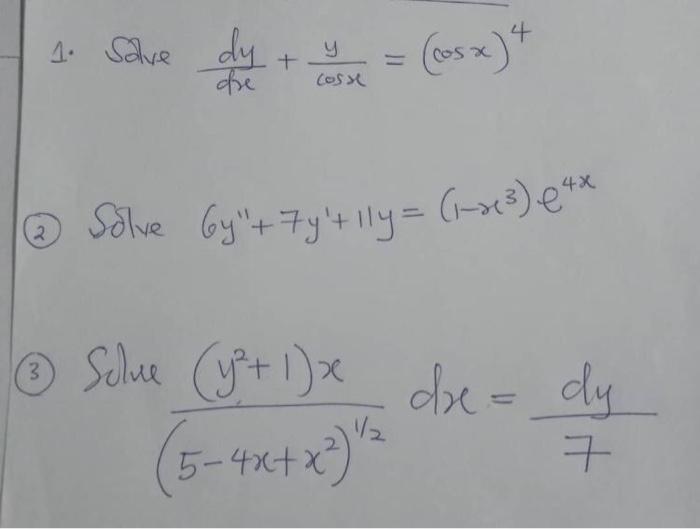 1. Solve dy/dx + y/cosx = (cosx)^4
② Solve 6y'' + 7y' + 11y = (1-x³) e^4x
③ Solve (y²+1)x / (5-4x+x²)^1/2 dx = dy/7